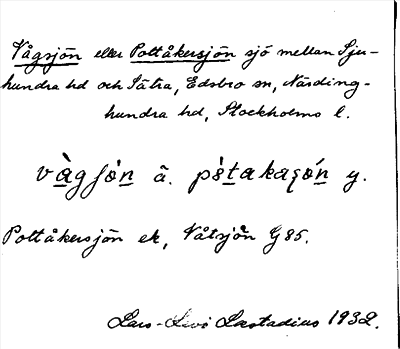 Vågsjön eller Pottåkersjön sjö mellan Sju-
hundra hd och Sätra, Edsbro sn, Närding-
hundra hd, Stockholms l.
vàgſön ä. pŏtakaşön y.
Pottåkersjön ek, Våtsjön G85.
Lars-Levi Læstadius 1932.